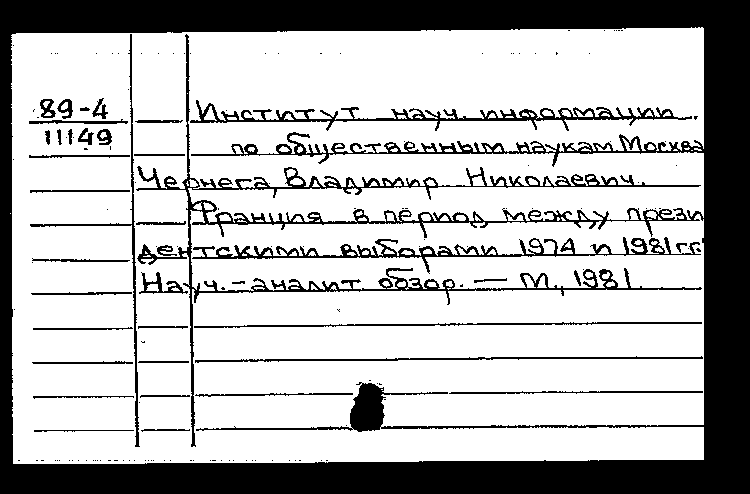 89-4
11149
Институт науч. информации
по общественным наукам. Москва
Чернега, Владимир Николаевич.
Франция в период между прези
дентскими выборами 1974 и 1981 гг.:
Науч.-аналит обзор. — М., 1981.